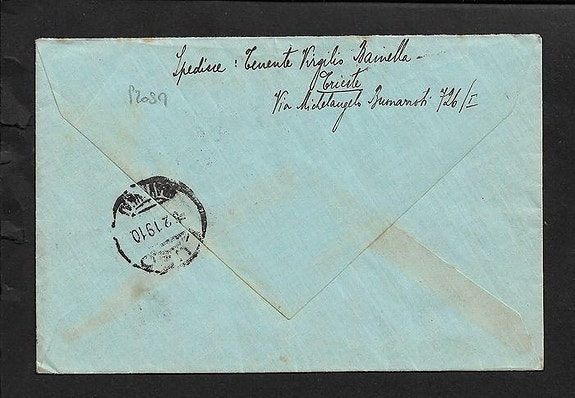 Spedisce : Tenente Virgilio Bainella -
Trieste
Via Michelangelo Buonarroti 726/I